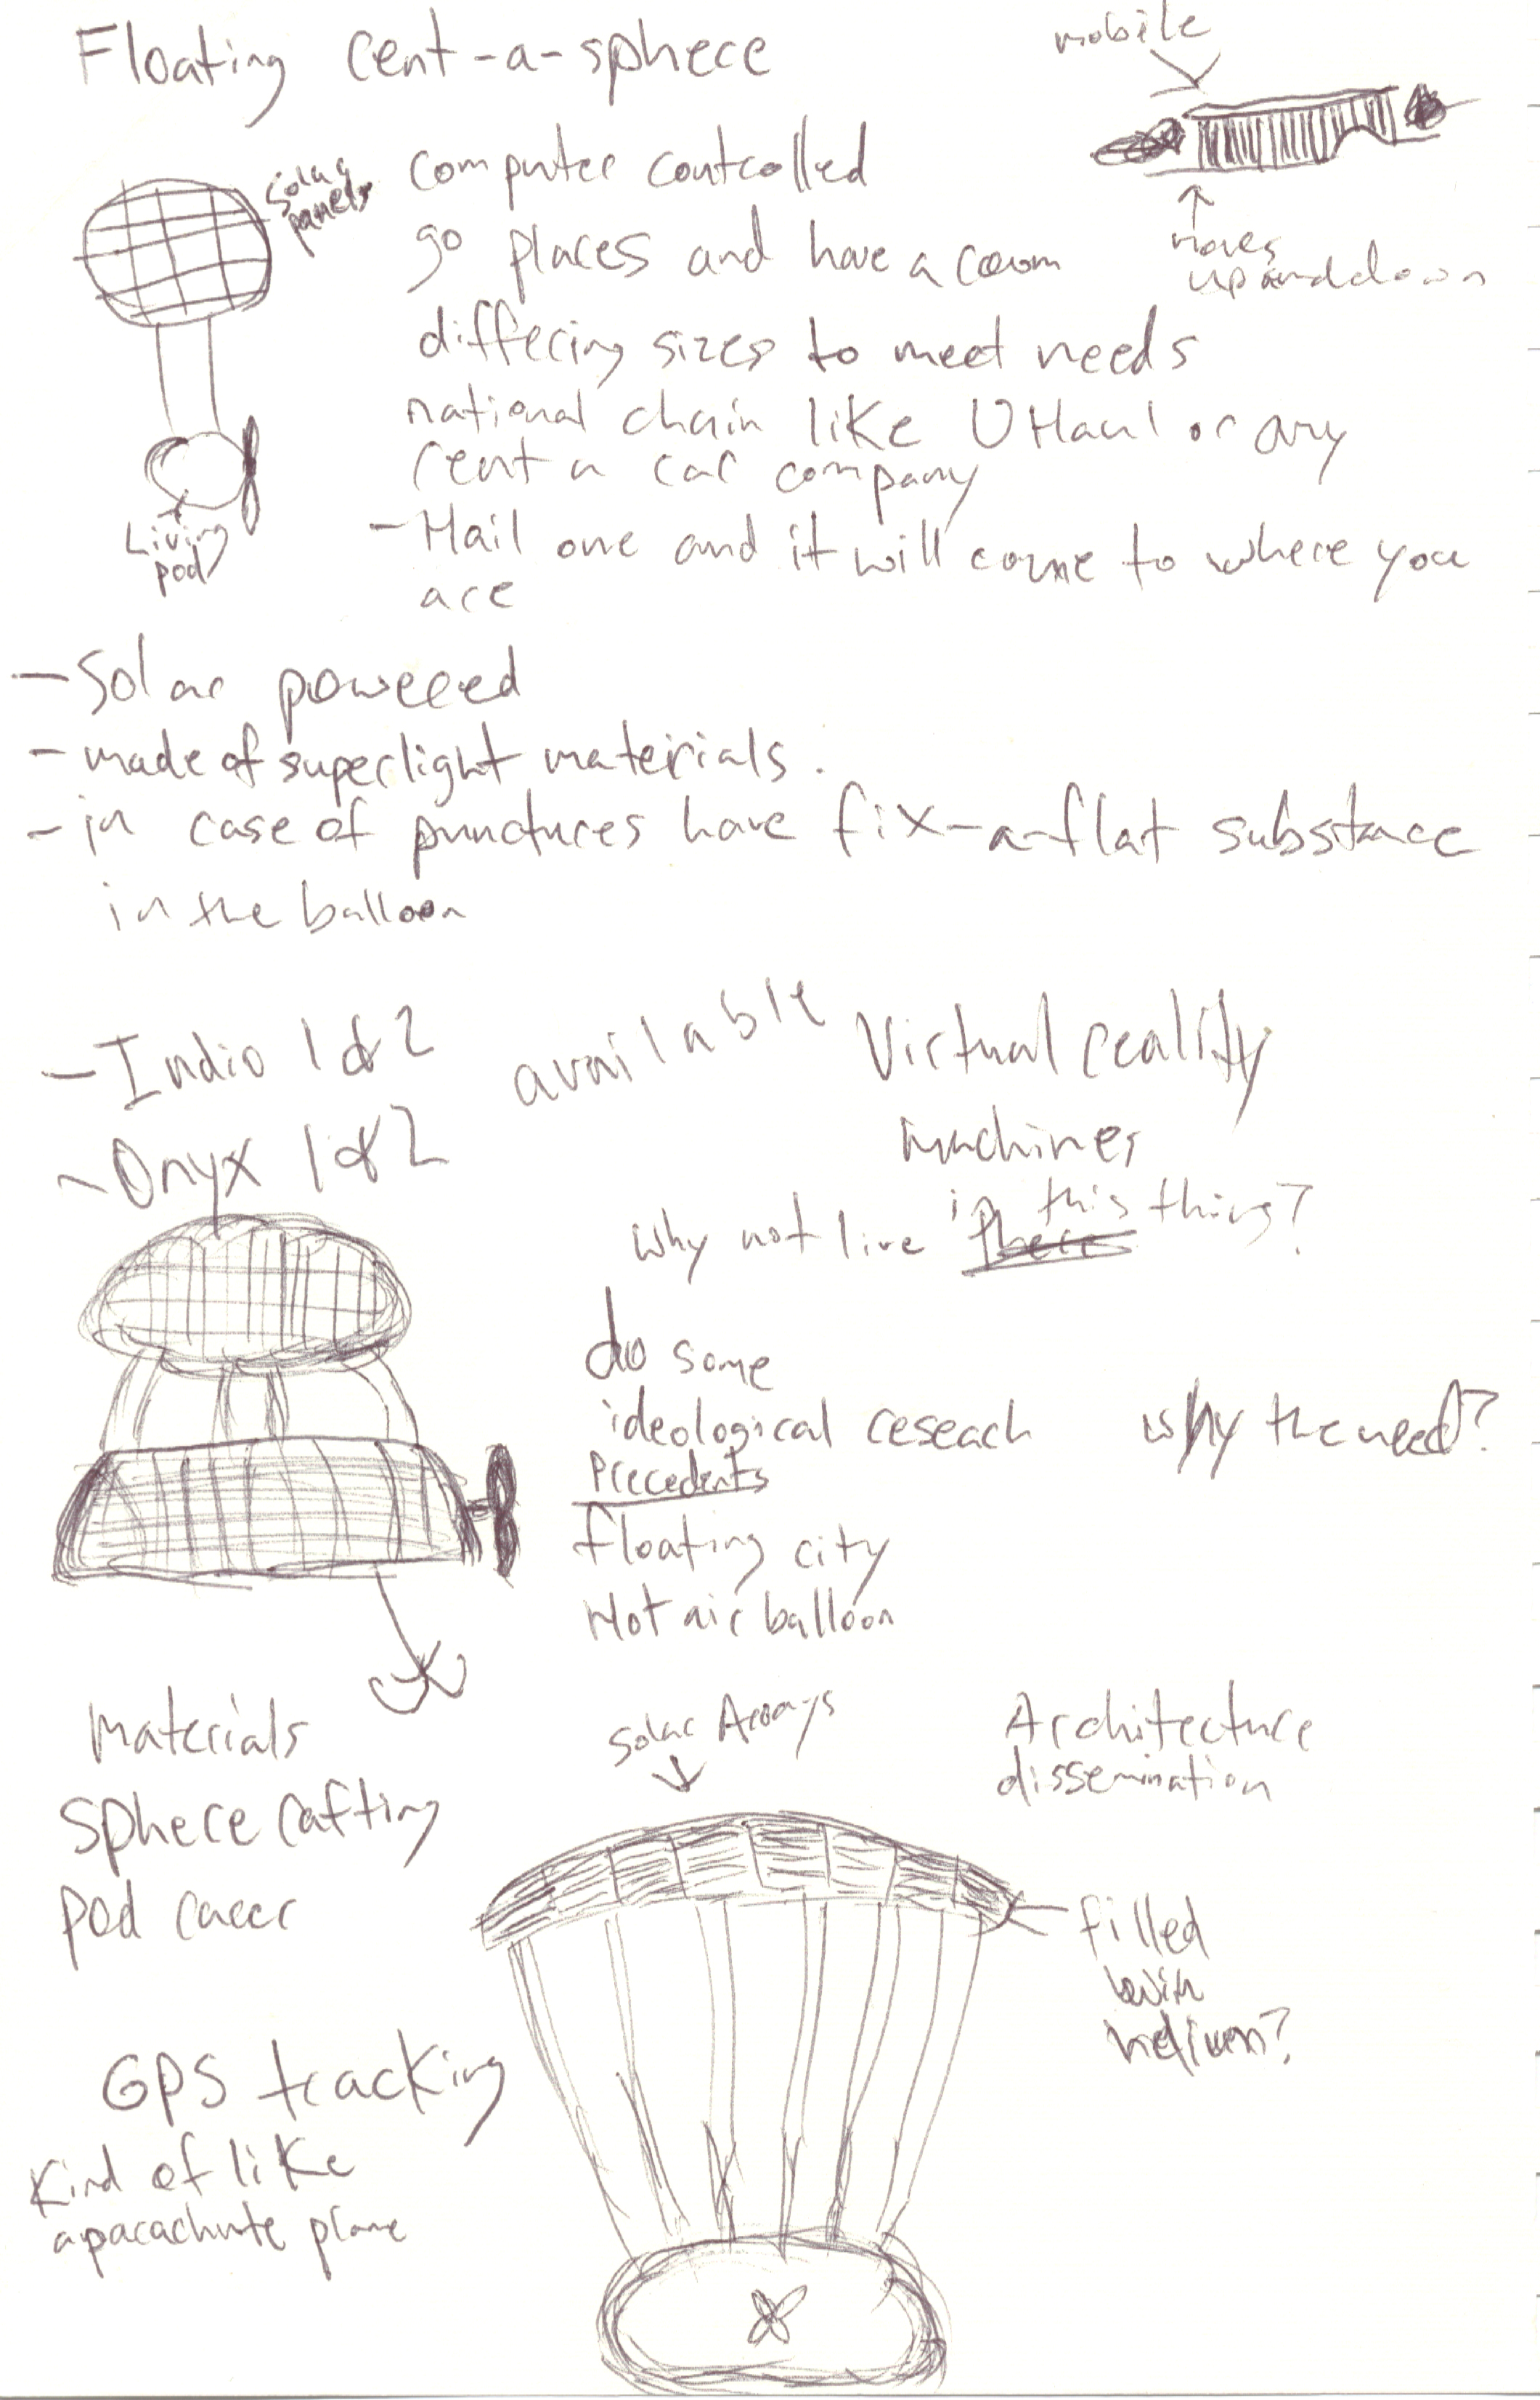 Floating rent-a-sphere
mobile
solar
panels
computer controlled
go places and have a room
moves
up and down
differing sizes to meet needs
national chain like UHaul or any
rent a car company
- Hail one and it will come to where you
are
Living
pod
- Solar powered
- made of superlight materials.
- in case of punctures have fix-a-flat substace
in the balloon
- Indio 1 & 2 available Virtual reality
machines
- Onyx 1 & 2
why not live in this thing?
do some
ideological reseach why the need?
Precedents
floating city
Hot air balloon
Materials
Sphere rafting
Pod racer
solar Arrays
Architecture
dissemination
filled
with
helium?
GPS tracking
Kind of like
a parachute plane